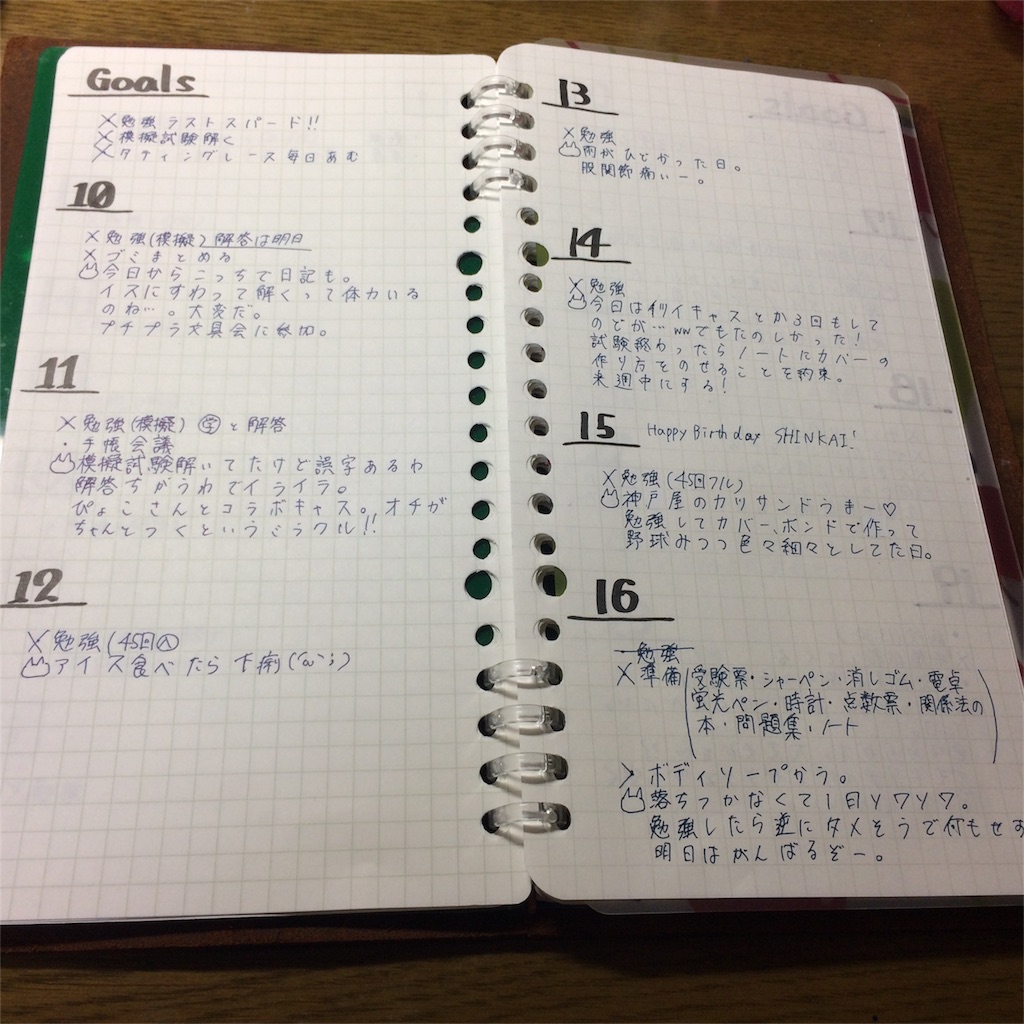 Goals
×勉強ラストスパード!!
×模擬試験解く
×タティングレース毎日あむ
10
×勉強(模擬)解答は明日
×ゴミまとめる
今日からこっちで日記も。
イスにすわって解くって体力いる
のね…。大変だ。
プチプラ文具会に参加。
11
×勉強(模擬) 学と解答
・手帳会議
模擬試験解いてたけど誤字あるわ
解答ちがうわでイライラ。
ぴょこさんとコラボキャス。オチが
ちゃんとつくというミラクル!!
12
×勉強(45回
アイス食べたら下痢(´ω`;)
13
×勉強
雨がひどかった日。
股関節痛いー。
14
×勉強
今日はツイキャスとか3回もして
のどが…wwでもたのしかった!
試験終わったらノートにカバーの
作り方をのせることを約束。
来週中にする!
15 Happy Birthday SHINKAI!
×勉強(45回フル)
神戸屋のカツサンドうまー♡
勉強してカバー、ボンドで作って
野球みつつ色々細々としてた日。
16
勉強
×準備(受験票・シャーペン・消しゴム・電卓
蛍光ペン・時計・点数票・関係法の
本・問題集・ノート)
>ボディソープかう。
落ちつかなくて1日ソワソワ。
勉強したら逆にダメそうで何もせず
明日はがんばるぞー。